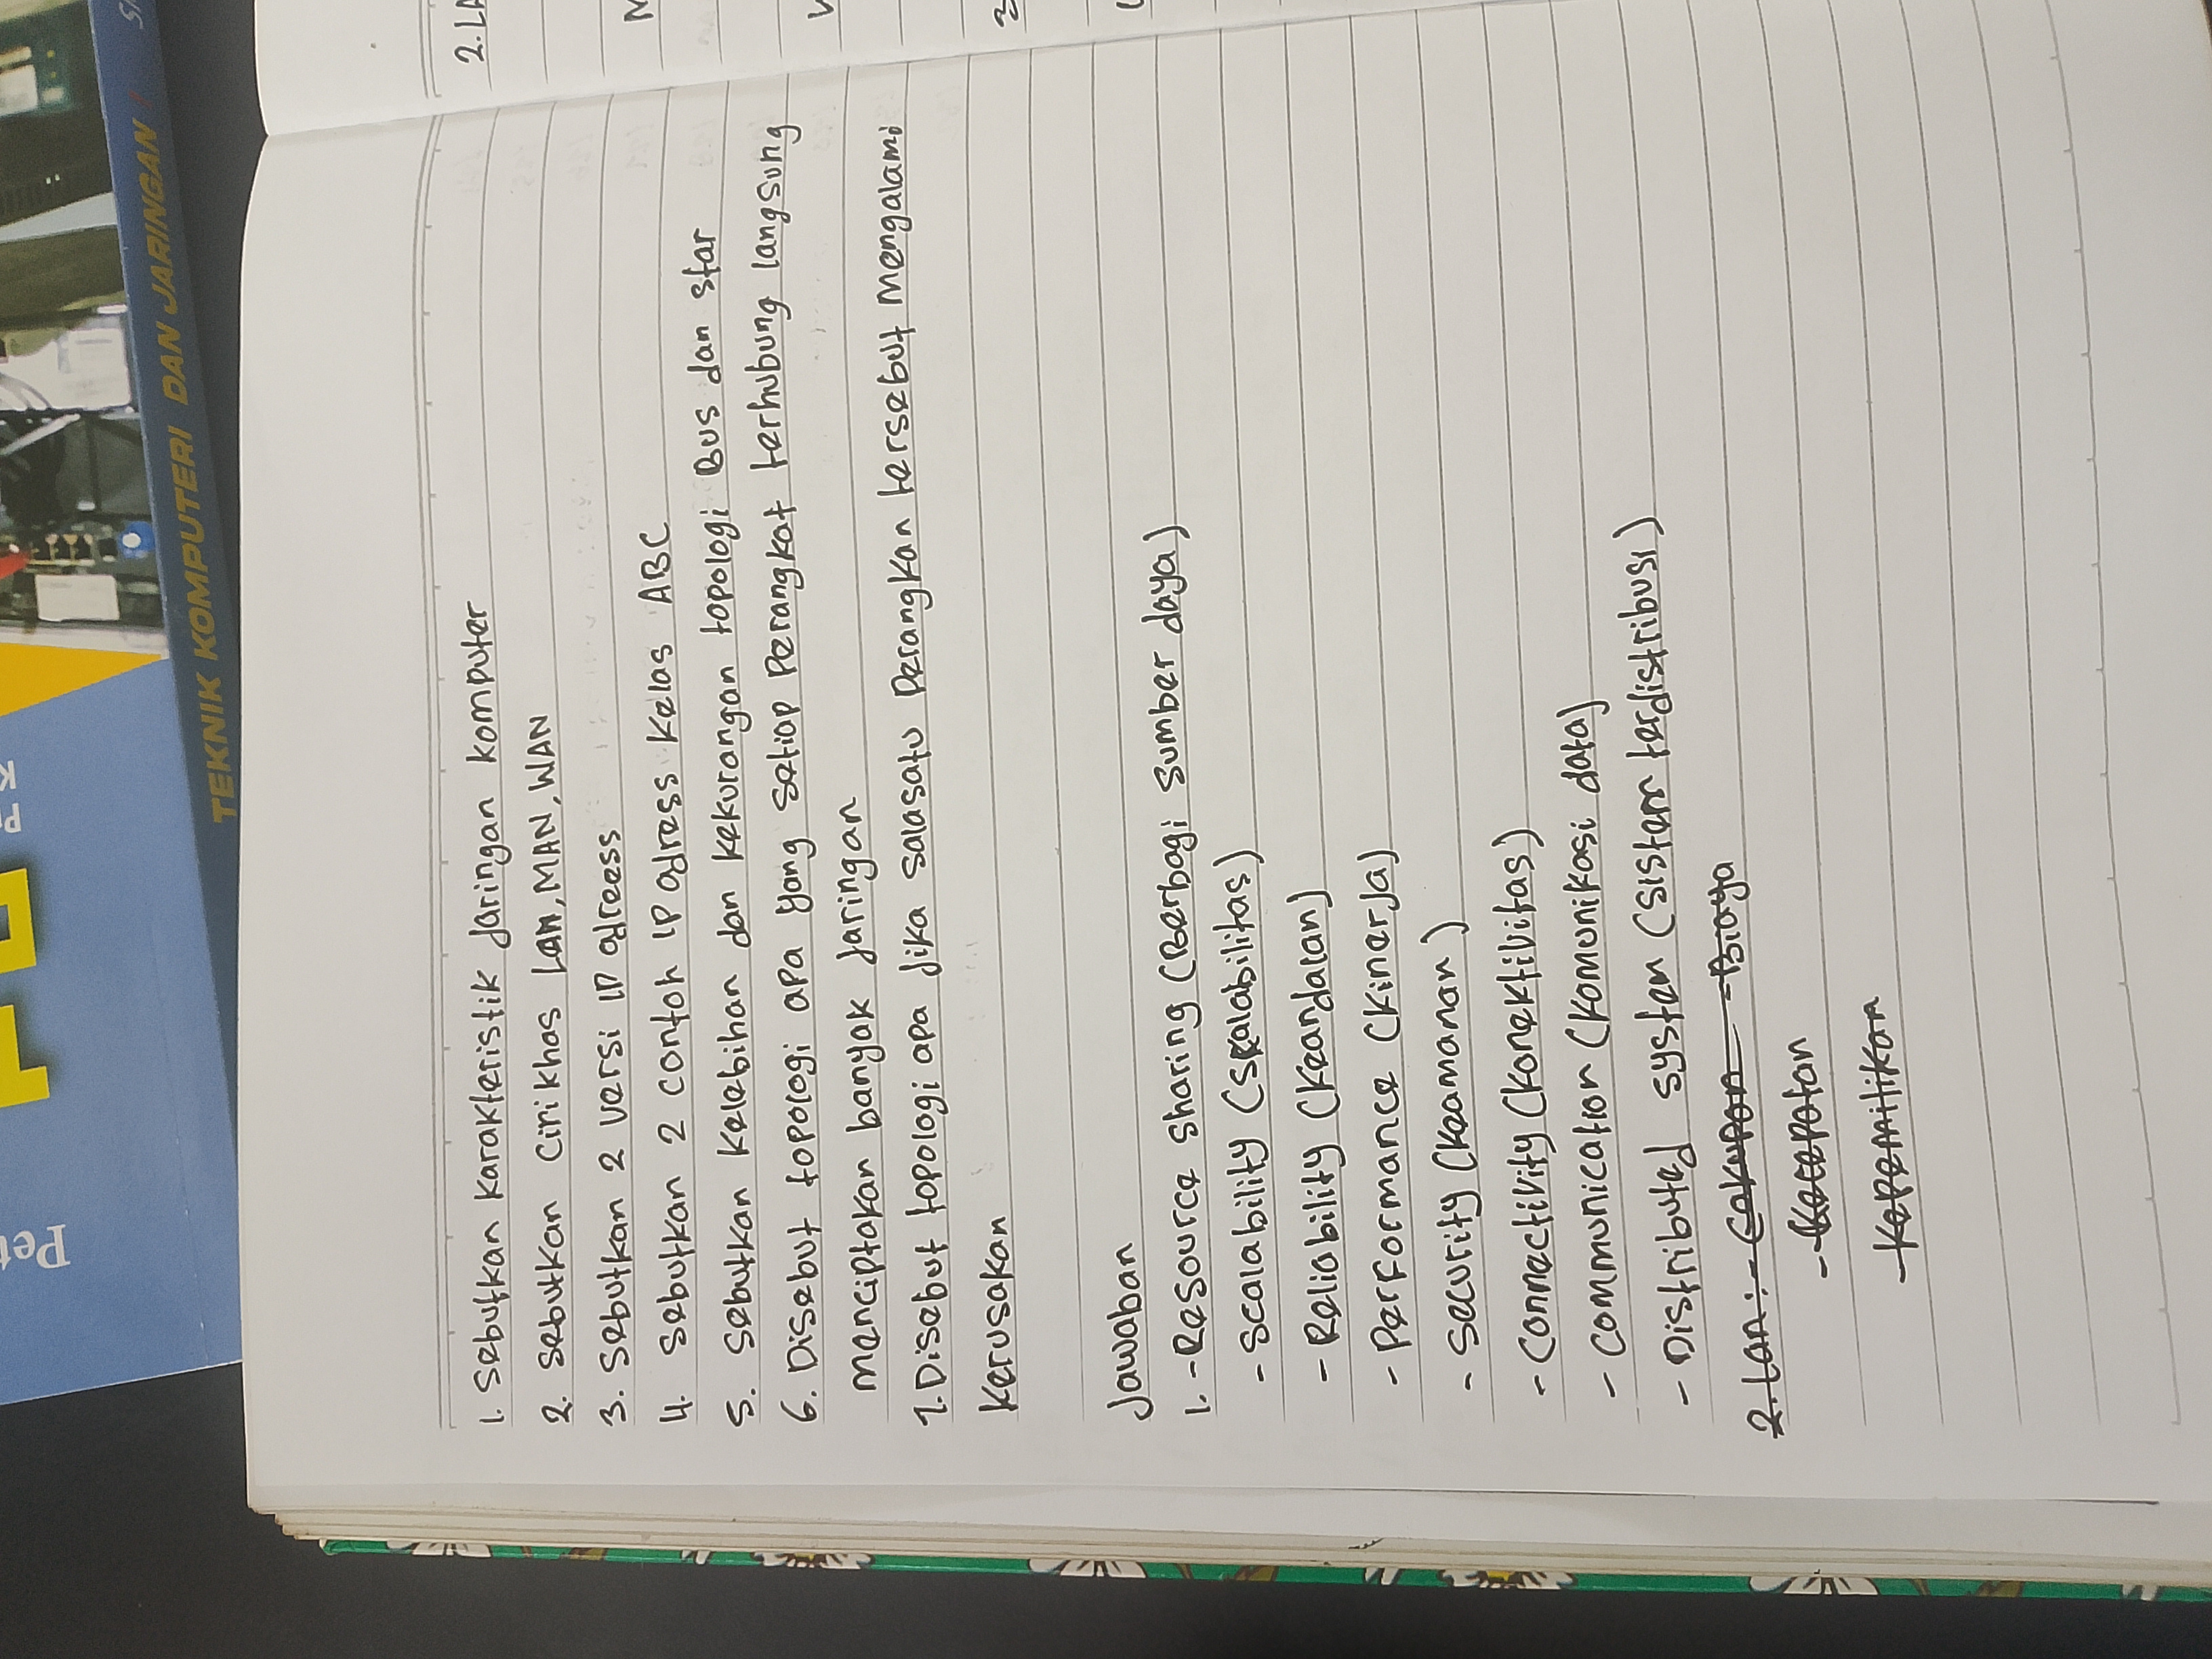 1. Sebutkan karakteristik Jaringan komputer
2. Sebutkan Ciri khas Lan, MAN, WAN
3. Sebutkan 2 versi IP adreess
4. Sebutkan 2 contoh IP adress kelas ABC
5. Sebutkan kelebihan dan kekurangan topologi Bus dan star
6. Disebut topologi apa yang setiap perangkat terhubung langsung
menciptakan banyak Jaringan
7. Disebut topologi apa Jika salasatu perangkan tersebut mengalami
kerusakan
Jawaban
1. - Resource sharing (Berbagi sumber daya)
- Scalability (Skalabilitas)
- Reliability (Keandalan)
- Performance (Kinerja)
- Security (Keamanan)
- Connectivity (Konektivitas)
- Communication (Komunikasi data)
- Distributed system (Sistem terdistribusi)
2. Lan : - Cakupan - Biaya
- Kecepatan
- Kepemilikan
2. LA
TEKNIK KOMPUTERI DAN JARINGAN 1
Pet